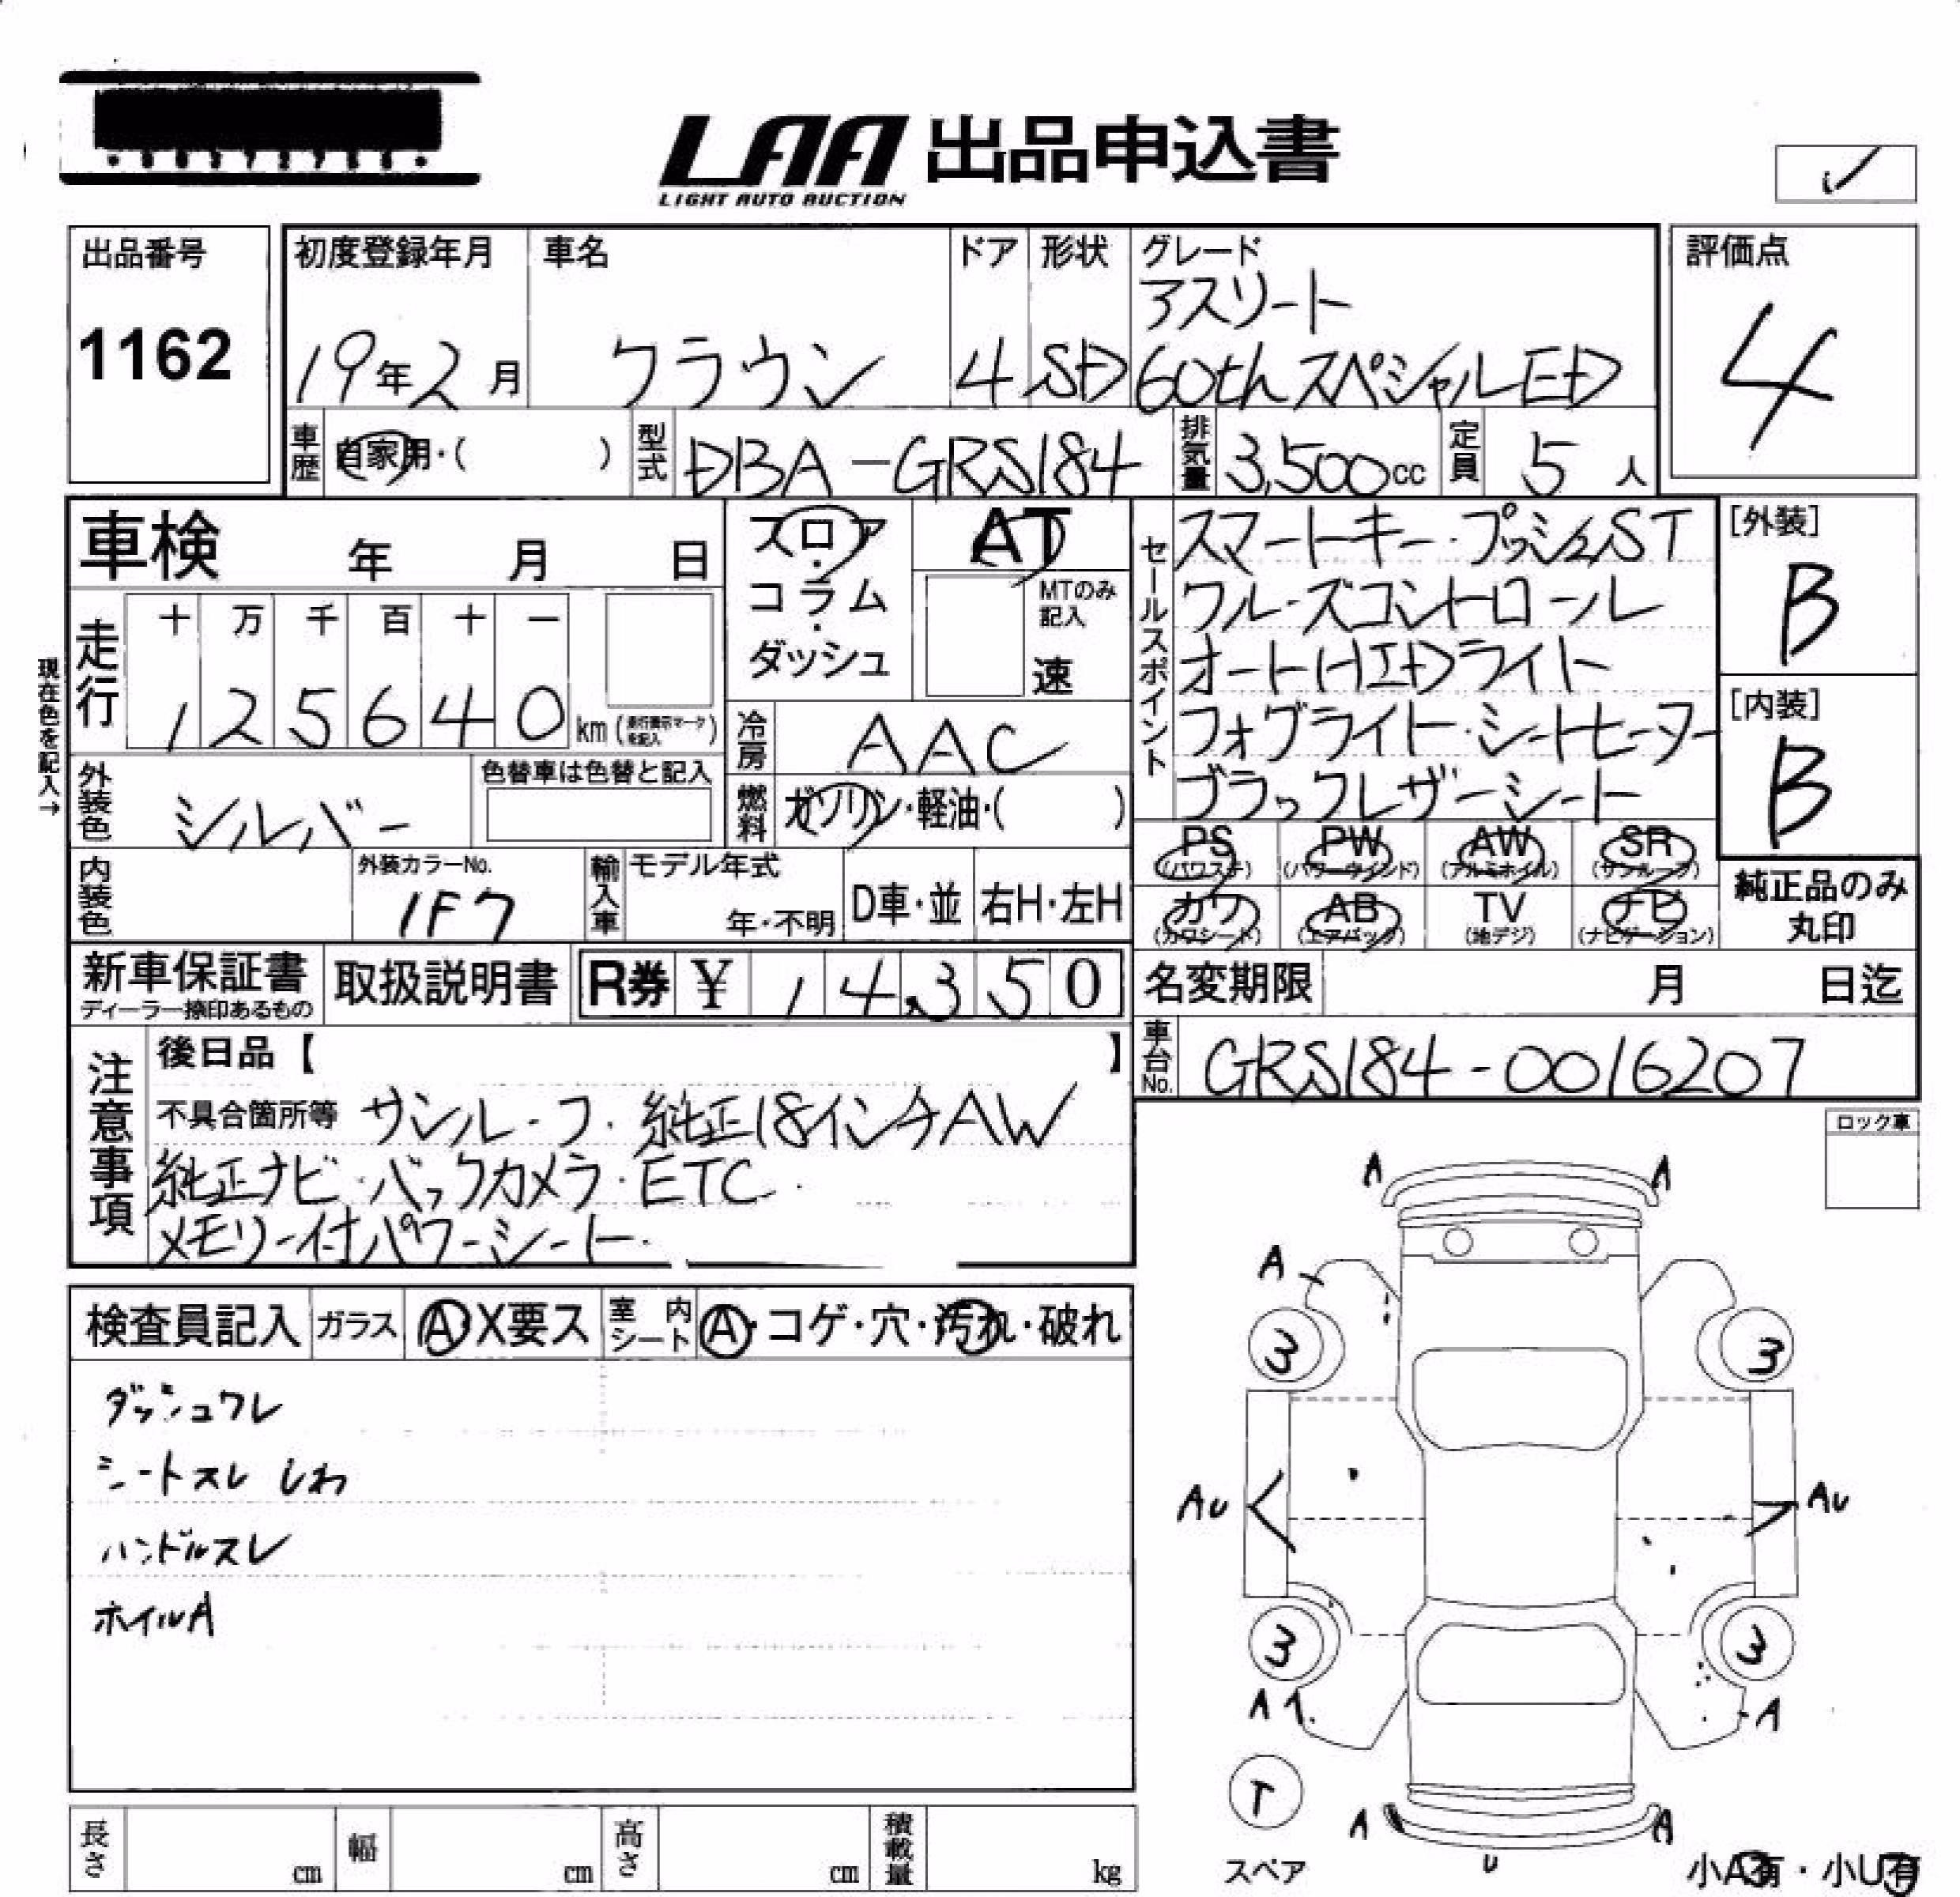 LAA 出品申込書
LIGHT AUTO AUCTION
出品番号
1162
初度登録年月
19年2月
車名
クラウン
ドア
4
形状
SD
グレード
アスリート
60thスペシャルED
評価点
4
車歴 自家用・( )
型式 DBA-GRS184
排気量 3,500cc
定員 5人
車検 年 月 日
フロア・コラム・ダッシュ
AT
MTのみ記入
速
セールスポイント
スマートキー・プッシュST
クルーズコントロール
オートHIDライト
フォグライト・シートヒーター
ブラックレザーシート
[外装]
B
[内装]
B
現在色を記入→
走行
十 万 千 百 十 一
1 2 5 6 4 0 km (走行表示マークを記入)
冷房 AAC
外装色 シルバー
色替車は色替と記入
燃料 ガソリン・軽油・( )
PS (パワステ) PW (パワーウインド) AW (アルミホイル) SR (サンルーフ)
カワ (カワシート) AB (エアバック) TV (地デジ) ナビ (ナビゲーション)
純正品のみ
丸印
内装色
外装カラーNo.
1F7
輸入車 モデル年式
年・不明
D車・並
右H・左H
新車保証書
ディーラー捺印あるもの
取扱説明書
R券 ¥ 14,350
名変期限 月 日迄
車台No. GRS184-0016207
注意事項
後日品【 】
不具合箇所等 サンルーフ・純正18インチAW
純正ナビ・バックカメラ・ETC
メモリー付パワーシート
ロック車
検査員記入
ガラス A・X要ス
室内シート A・コゲ・穴・汚れ・破れ
ダッシュワレ
シートスレ しわ
ハンドルスレ
ホイルA
A A
A
3 3
AU AU
3 3
A A
T
スペア
A A
U
小A有・小U有
長さ cm
幅 cm
高さ cm
積載量 kg